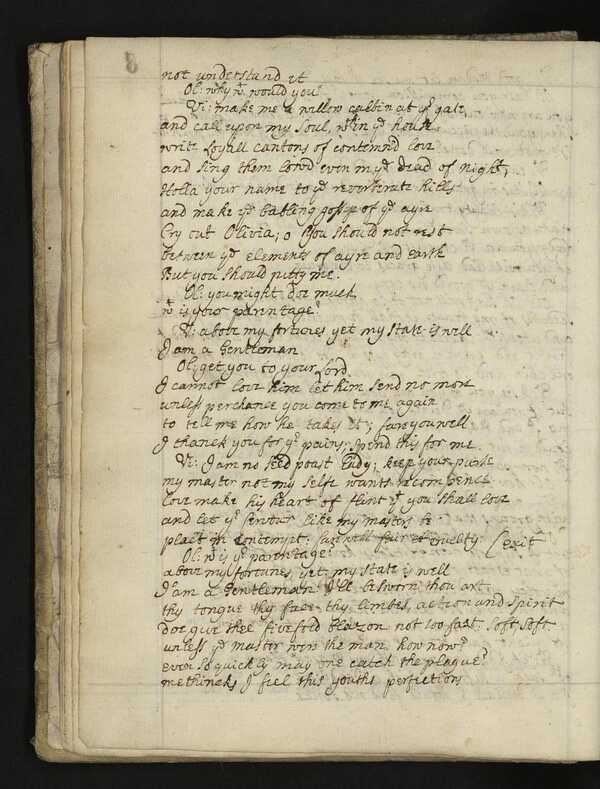 8
not understand it
Ol: why wt would you
Vi: make me a willow cabbin at yr gate,
and call upon my Soul, wthin ye house
write Loyall cantons of contemnd love
and sing them lowd even in ye dead of night,
Holla your name to ye reverberate hills
and make ye babling gossip of ye ayre
Cry out Olivia; o you should not rest
between ye elements of ayre and earth
But you should pitty me.
Ol: you might doe much
wt is your parentage?
Vi: above my fortunes yet my state is well
I am a Gentleman
Ol: get you to your Lord
I cannot love him let him send no more
unless perchance you come to me again
to tell me how he takes it; fare you well
I thanck you for yr pains; spend this for me
Vi: I am no feed poast Lady; keep your purse
my master not my selfe wants recompence
Love make his heart of flint yt you shall love
and let yr fervour like my masters be
plac't in contempt: farewell fair Cruelty. [exit
Ol: wt is yr parentage?
above my fortunes, yet my state is well
I am a Gentleman I'll besworn thou art
thy tongue thy face thy limbes, action and spirit
doe give thee fivefold blazon not too fast soft soft
unless ye master were the man how now?
even so quickly may one catch the plague?
methincks I feel this youths perfections